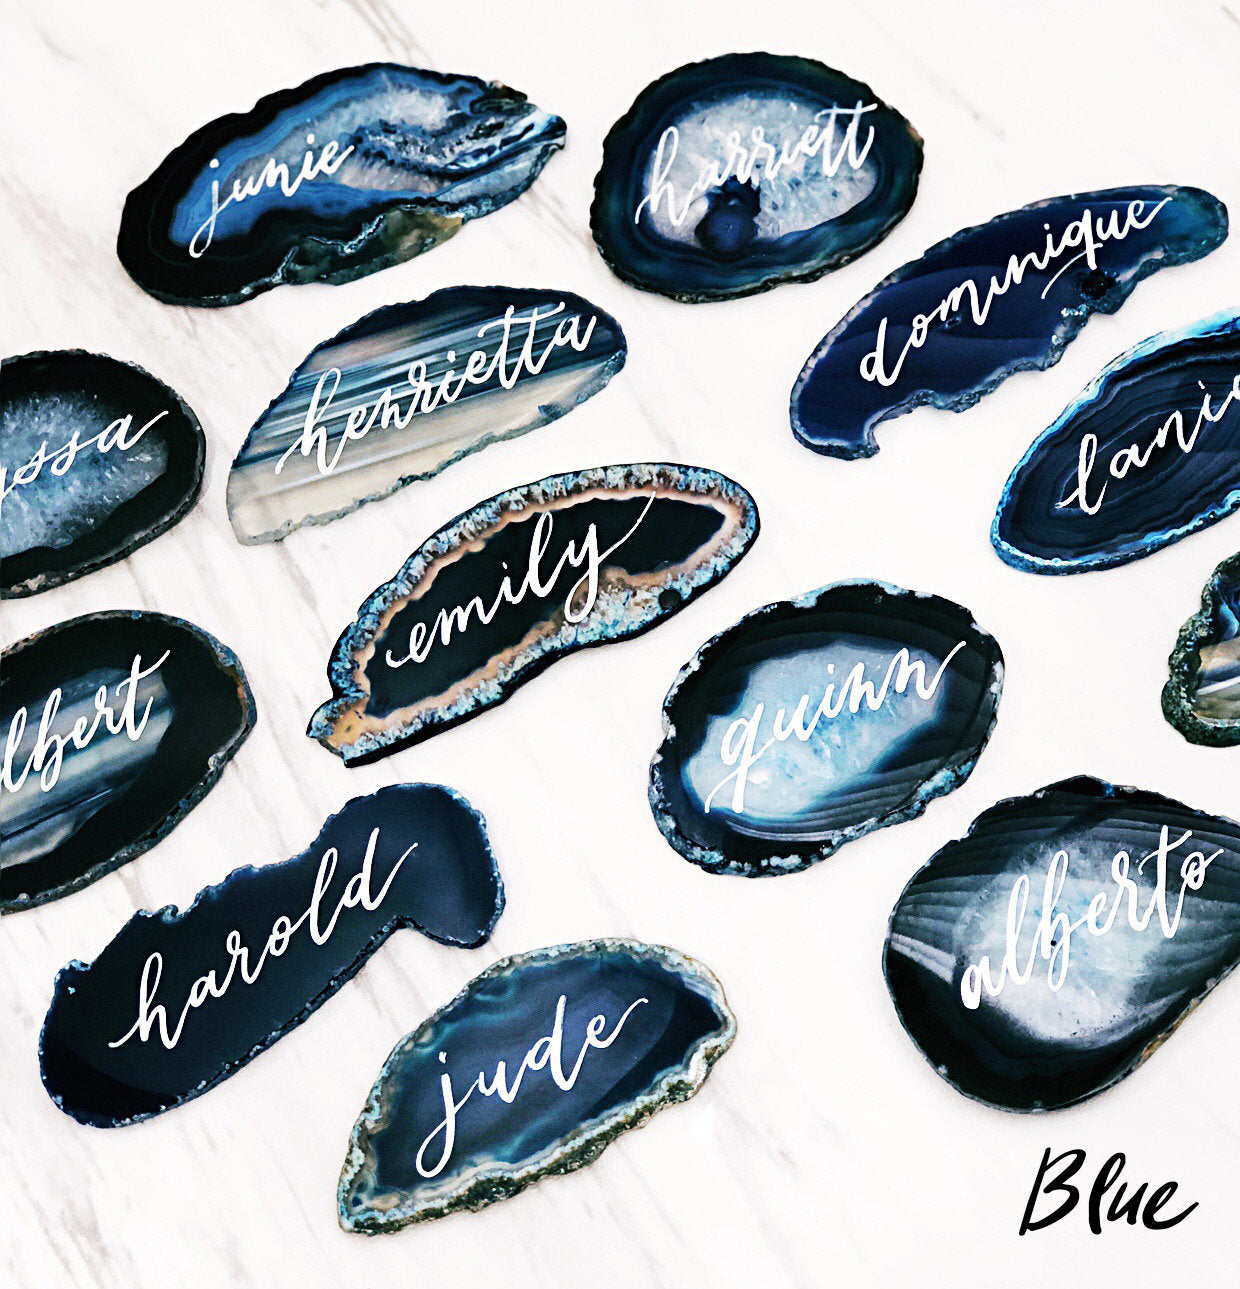 junie
harriett
dominique
henrietta
lanie
yssa
emily
lbert
quinn
harold
alberto
jude
Blue